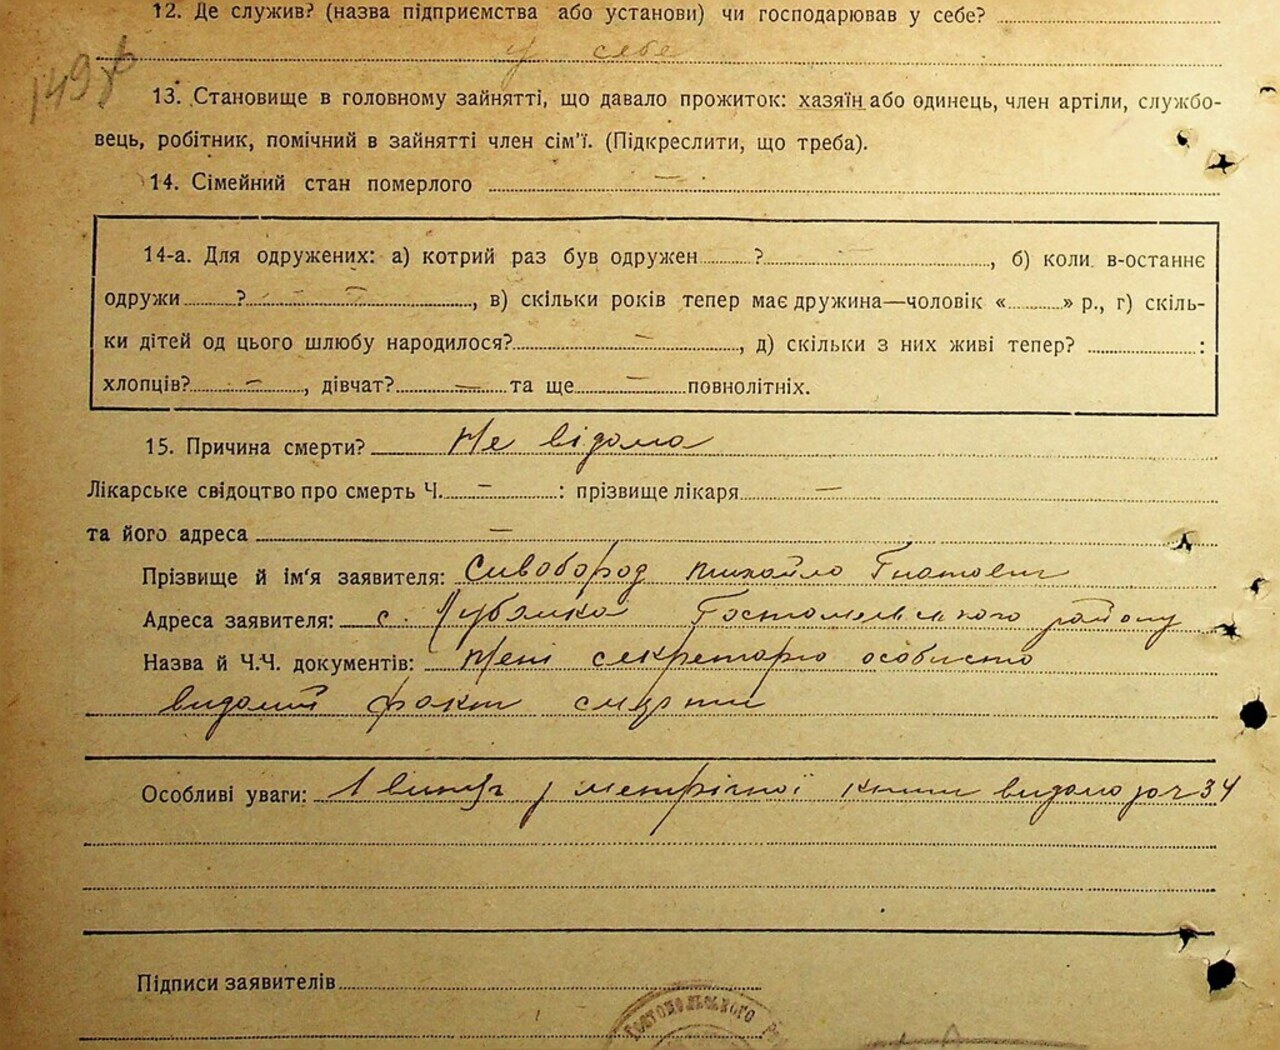 12. Де служив? (назва підприємства або установи) чи господарював у себе?
у себе
149
13. Становище в головному зайнятті, що давало прожиток: хазяїн або одинець, член артіли, службо-
вець, робітник, помічний в зайнятті член сім'ї. (Підкреслити, що треба).
14. Сімейний стан померлого —
14-а. Для одружених: а) котрий раз був одружен ? —, б) коли в-останнє
одружи ? —, в) скільки років тепер має дружина—чоловік « » р., г) скіль-
ки дітей од цього шлюбу народилося? —, д) скільки з них живі тепер? :
хлопців? —, дівчат? — та ще — повнолітніх.
15. Причина смерти? Не відома
Лікарське свідоцтво про смерть Ч. — : прізвище лікаря —
та його адреса —
Прізвище й ім'я заявителя: Сивобород Михайло Гнатович
Адреса заявителя: с. Лубянка Гостомельского району
Назва й Ч.Ч. документів: Мені секретарю особисто
видомий факт смерти
Особливі уваги: 1 витяг з метрічної книги видано за ч 34
Підписи заявителів